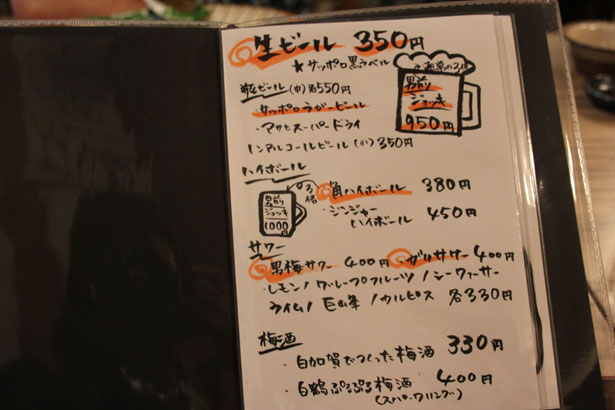 生ビール 350円
★サッポロ黒ラベル
通常の3倍
男前
ジョッキ
950円
瓶ビール (中) 各550円
・サッポロラガービール
・アサヒスーパードライ
ノンアルコールビール (小) 350円
ハイボール
3倍
男前
ジョッキ
1000円
角ハイボール 380円
・ジンジャー
ハイボール 450円
サワー
男梅サワー 400円 ガリサワー 400円
・レモン/グレープフルーツ/シークァーサー
ライム/巨峰/カルピス 各330円
梅酒
・白加賀でつくった梅酒 330円
・白鶴ぷるぷる梅酒 400円
(スパークリング)